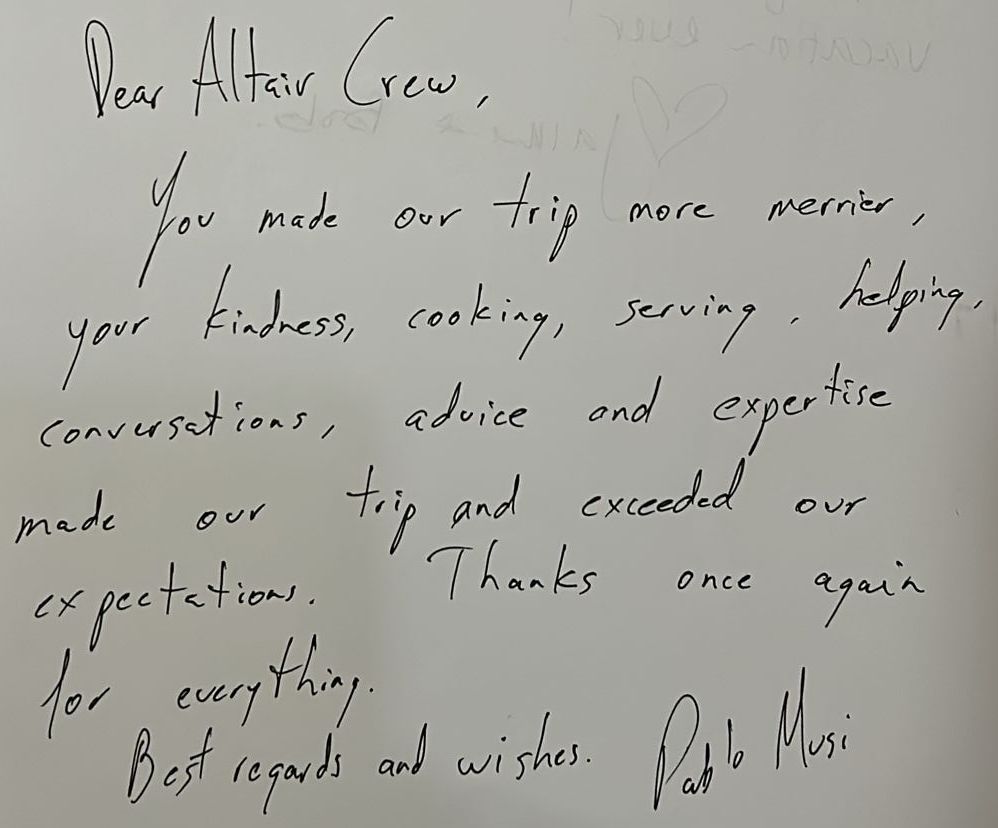 Dear Altair Crew,
You made our trip more merrier,
your kindness, cooking, serving, helping,
conversations, advice and expertise
made our trip and exceeded our
expectations. Thanks once again
for everything.
Best regards and wishes. Pablo Musi